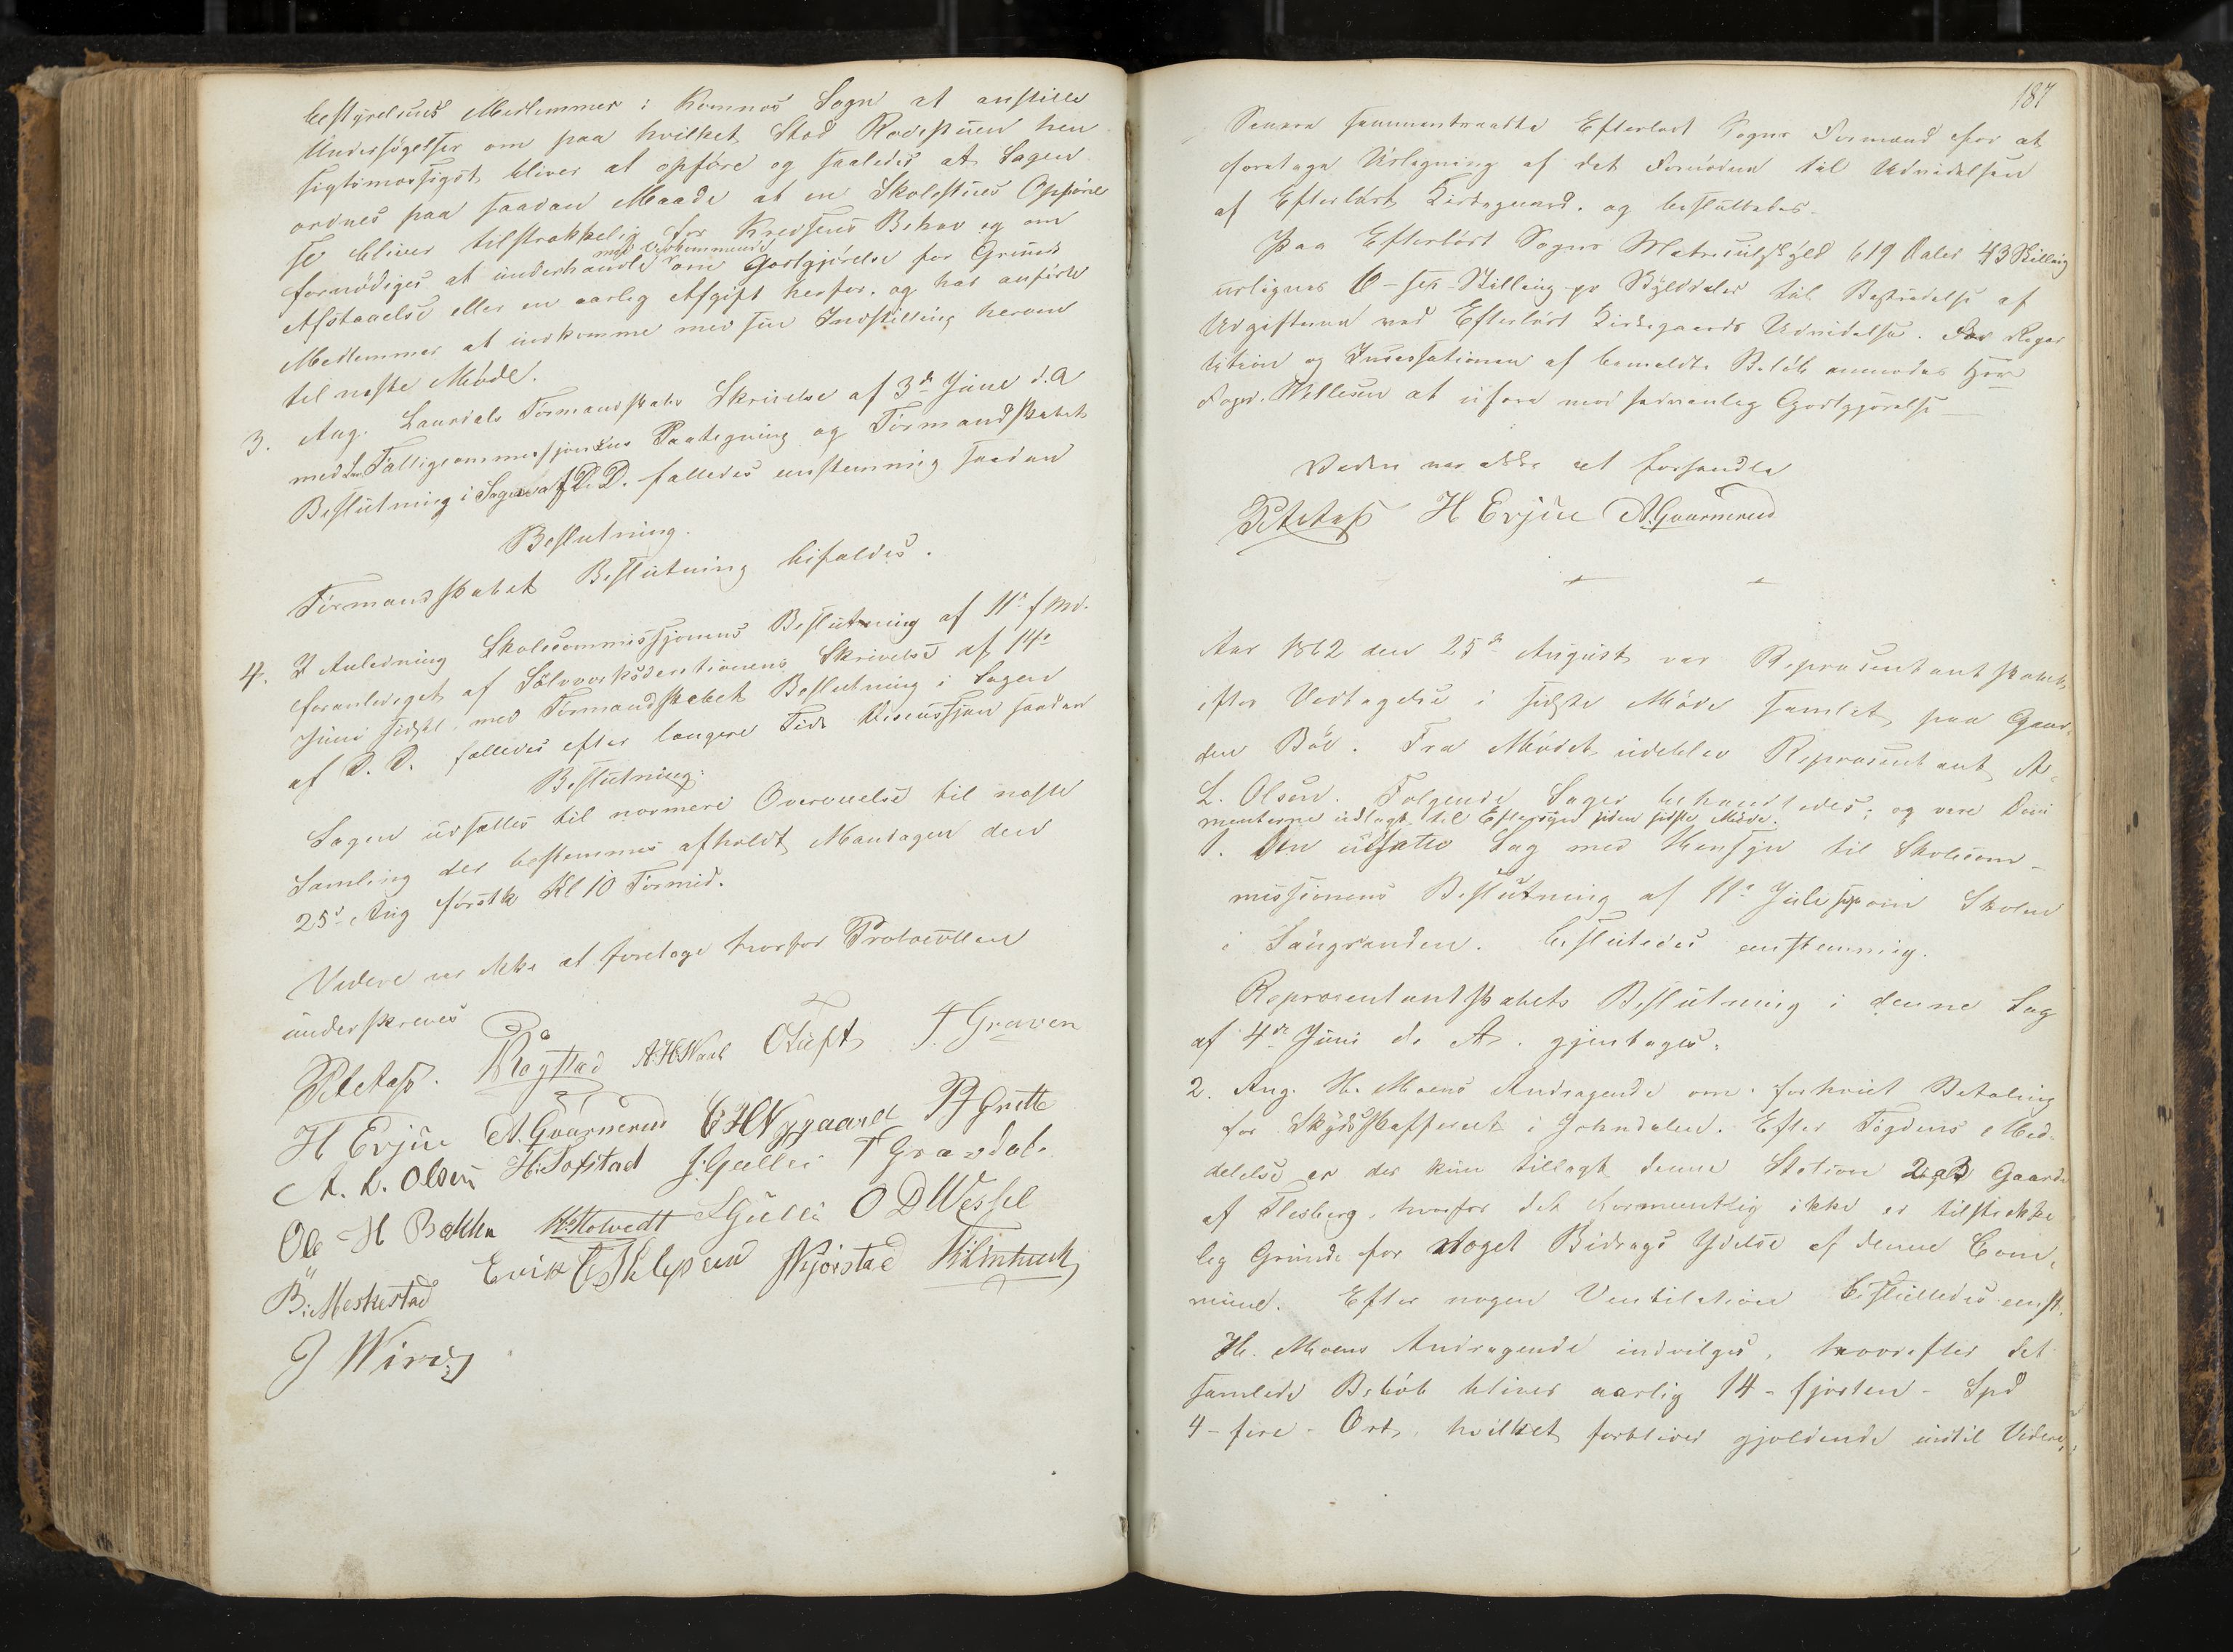 bestyrelsens Medlemmer i Komnes Sogn at anstille
Undersøgelser om paa hvilket Sted Rodestuen hen
sigtsmæssigst bliver at opføre og saaledes at Sagen
ordnes paa saadan Maade at en Skolestues Opførel
se bliver tilstrækkelig for Kredsens Behov og om
med Vedkommende
fornødiges at underhandle om Godtgjørelse for Grunds
Afstaaelse eller en aarlig Afgift herfor, og har anførte
Medlemmer at indkomme med sin Indstilling herom
til næste Møde.
3. Ang. Laurdals Formandskabs Skrivelse af 3d Juni d.A
med Fattigcommissionens Paategning og Formandskabets
Beslutning i Sagen af D.D. falledes enstemmig saadan
Beslutning.
Formandskabets Beslutning bifaldes.
4. I Anledning Skolecommissjonens Beslutning af 11te f Md.
foranlediget af Sølvværksdirectionens Skrivelse af 14de
Juni sidstl. med Formandskabets Beslutning i Sagen
af D.D. falledes efter længere Tids Discussjon saadan
Beslutning:
Sagen udsættes til nærmere Overveielse til næste
Samling der bestemmes afholdt Mandagen den
25d Aug førstk Kl 10 Formid.
Videre var ikke at foretage hvorfor Protocollen
underskreves
Rogstad OTuft T. Graven
H Evju A. Gaarnerud CHNygaard
A. L. Olsen H. Tofstad J. Gulli T Gravdal
Ole H Bakka H. Holvedt S Gulli O D Wessel
B. Meskestad Erik Kjørstad
J Wiroy
187
Senere sammentraadte Efterløst Sogns Formænd for at
foretage Udligning af det Fornødne til Udvidelsen
af Efterløst Kirkegaard, og besluttedes.
Paa Efterløst Sogns Matriculskyld 619 Daler 43 Skilling
udlignes 6 - sex - Skilling pr Skylddaler til Bestridelse af
Udgifterne ved Efterløst Kirkegaards Udvidelse. For Repar
tition og Incassationen af bemeldte Beløb anmodes Herr
Foged Willesen at udføre mod sædvanlig Godtgjørelse
Videre var ikke at forhandle
H Evju A. Gaarnerud
Aar 1862 den 25de August var Repræsentantskabet
efter Vedtagelse i sidste Møde samlet paa Gaar-
den Bøe. Fra Mødet udeblev Repræsentant A.
L. Olsen. Følgende Sager behandledes; og vare Docu
menterne udlagt til Eftersyn siden sidste Møde.
1. Den udsatte Sag med Hensyn til Skolecom-
missionens Beslutning af 11te Juli om Skolen
i Saugrenden. besluttedes enstemmig.
Repræsentantskabets Beslutning i denne Sag
af 4de Juni d. A. gjentages.
2. Ang. H. Moens Andragende om forhøiet Betaling
for Skydsskafferiet i Jondalen. Efter Fogdens Med-
delelse er der kun tillagt denne Station 2 a 3 Gaarde
af Flesberg, hvorfor det formentlig ikke er tilstrække
lig Grund for noget Bidrags Ydelse af denne Com-
mune. Efter nogen Ventilation besluttedes enst.
H. Moens Andragende indvilges, hvorefter det
samlede Beløb bliver aarlig 14 - fjorten - Spd
4 - fire - Ort, hvilket forbliver gjeldende indtil Videre.